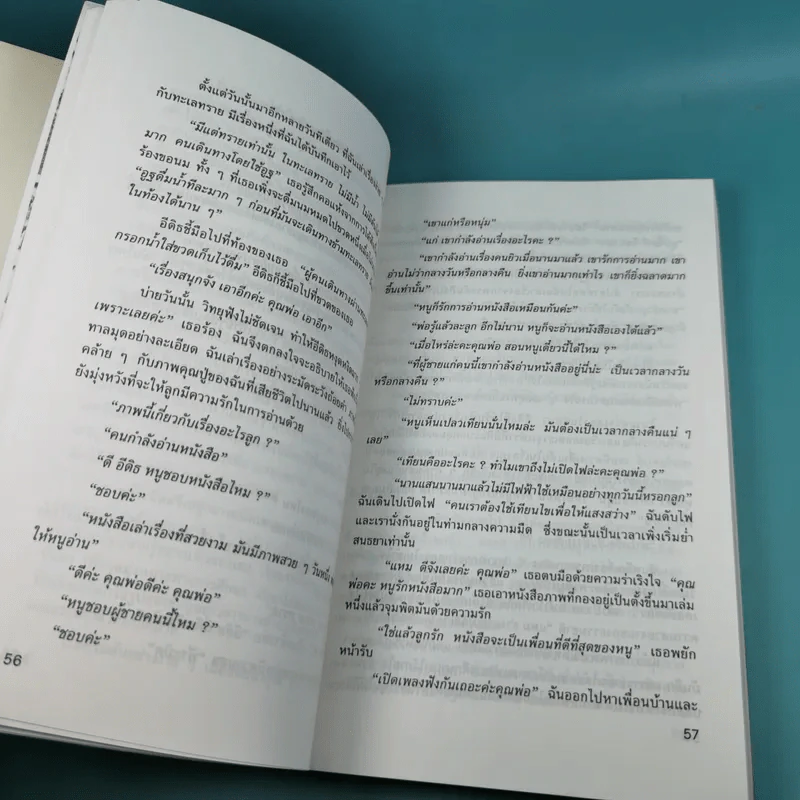 ตั้งแต่วันนั้นมาอีกหลายวันทีเดียว ที่ฉันเล่าเรื่อง
กับทะเลทราย มีเรื่องหนึ่งที่ฉันได้บันทึกเอาไว้
“มีแต่ทรายเท่านั้น ในทะเลทราย ไม่มีน้ำ
มาก คนเดินทางโดยใช้อูฐ” เธอรู้สึกคอแห้งจากการ
ร้องขอนม ทั้ง ๆ ที่เธอเพิ่งจะดื่มนมหมดไปขวดหนึ่ง
“อูฐดื่มน้ำทีละมาก ๆ ก่อนที่มันจะเดินทางข้ามทะเลทราย
ในท้องได้นาน ๆ”
อีดิธชี้มือไปที่ท้องของเธอ “ผู้คนเดินทาง
กรอกน้ำใส่ขวดเก็บไว้ดื่ม” อีดิธก็ชี้มือไปที่ขวดของเธอ
“เรื่องสนุกจัง เอาอีกค่ะ คุณพ่อ เอาอีก”
บ่ายวันนั้น วิทยุฟังไม่ชัดเจน ทำให้อีดิธหงุดหงิด
เพราะเลยค่ะ” เธอร้อง ฉันจึงตกลงใจจะอธิบาย
ทาลมุดอย่างละเอียด ฉันเล่าเรื่องอย่างระมัดระวังถ้อยคำ
คล้าย ๆ กับภาพคุณปู่ของฉันที่เสียชีวิตไปนานแล้ว
ยังมุ่งหวังที่จะให้ลูกมีความรักในการอ่านด้วย
“ภาพนี้เกี่ยวกับเรื่องอะไรลูก ?”
“คนกำลังอ่านหนังสือ”
“ดี อีดิธ หนูชอบหนังสือไหม ?”
“ชอบค่ะ”
“หนังสือเล่าเรื่องที่สวยงาม มันมีภาพสวย ๆ วันหนึ่ง
ให้หนูอ่าน”
“ดีค่ะ คุณพ่อดีค่ะ คุณพ่อ”
“หนูชอบผู้ชายคนนี้ไหม ?”
“ชอบค่ะ”
56
“เขาแก่หรือหนุ่ม”
“แก่ เขากำลังอ่านเรื่องอะไรคะ ?”
“เขากำลังอ่านเรื่องคนยิวเมื่อนานมาแล้ว เขารักการอ่านมาก เขา
อ่านไม่ว่ากลางวันหรือกลางคืน ยิ่งเขาอ่านมากเท่าไร เขาก็ยิ่งฉลาดมาก
ขึ้นเท่านั้น”
“หนูก็รักการอ่านหนังสือเหมือนกันค่ะ”
“พ่อรู้แล้วละลูก อีกไม่นาน หนูก็จะอ่านหนังสือเองได้แล้ว”
“เมื่อไหร่ล่ะคะคุณพ่อ สอนหนูเดี๋ยวนี้ได้ไหม ?”
“ที่ผู้ชายแก่คนนี้เขากำลังอ่านหนังสืออยู่นี่น่ะ เป็นเวลากลางวัน
หรือกลางคืน ?”
“ไม่ทราบค่ะ”
“หนูเห็นเปลวเทียนนั่นไหมล่ะ มันต้องเป็นเวลากลางคืนแน่ ๆ
เลย”
“เทียนคืออะไรคะ ? ทำไมเขาถึงไม่เปิดไฟล่ะคะคุณพ่อ ?”
“นานแสนนานมาแล้วไม่มีไฟฟ้าใช้เหมือนอย่างทุกวันนี้หรอกลูก”
ฉันเดินไปเปิดไฟ “คนเราต้องใช้เทียนไขเพื่อให้แสงสว่าง” ฉันดับไฟ
และเรานั่งกันอยู่ในท่ามกลางความมืด ซึ่งขณะนั้นเป็นเวลาเพิ่งเริ่มย่ำ
สนธยาเท่านั้น
“แหม ดีจังเลยค่ะ คุณพ่อ” เธอตบมือด้วยความร่าเริงใจ “คุณ
พ่อคะ หนูรักหนังสือมาก” เธอเอาหนังสือภาพที่กองอยู่เป็นตั้งขึ้นมาเล่ม
หนึ่งแล้วจุมพิตมันด้วยความรัก
“ใช่แล้วลูกรัก หนังสือจะเป็นเพื่อนที่ดีที่สุดของหนู” เธอพยัก
หน้ารับ
“เปิดเพลงฟังกันเถอะค่ะคุณพ่อ” ฉันออกไปหาเพื่อนบ้านและ
57